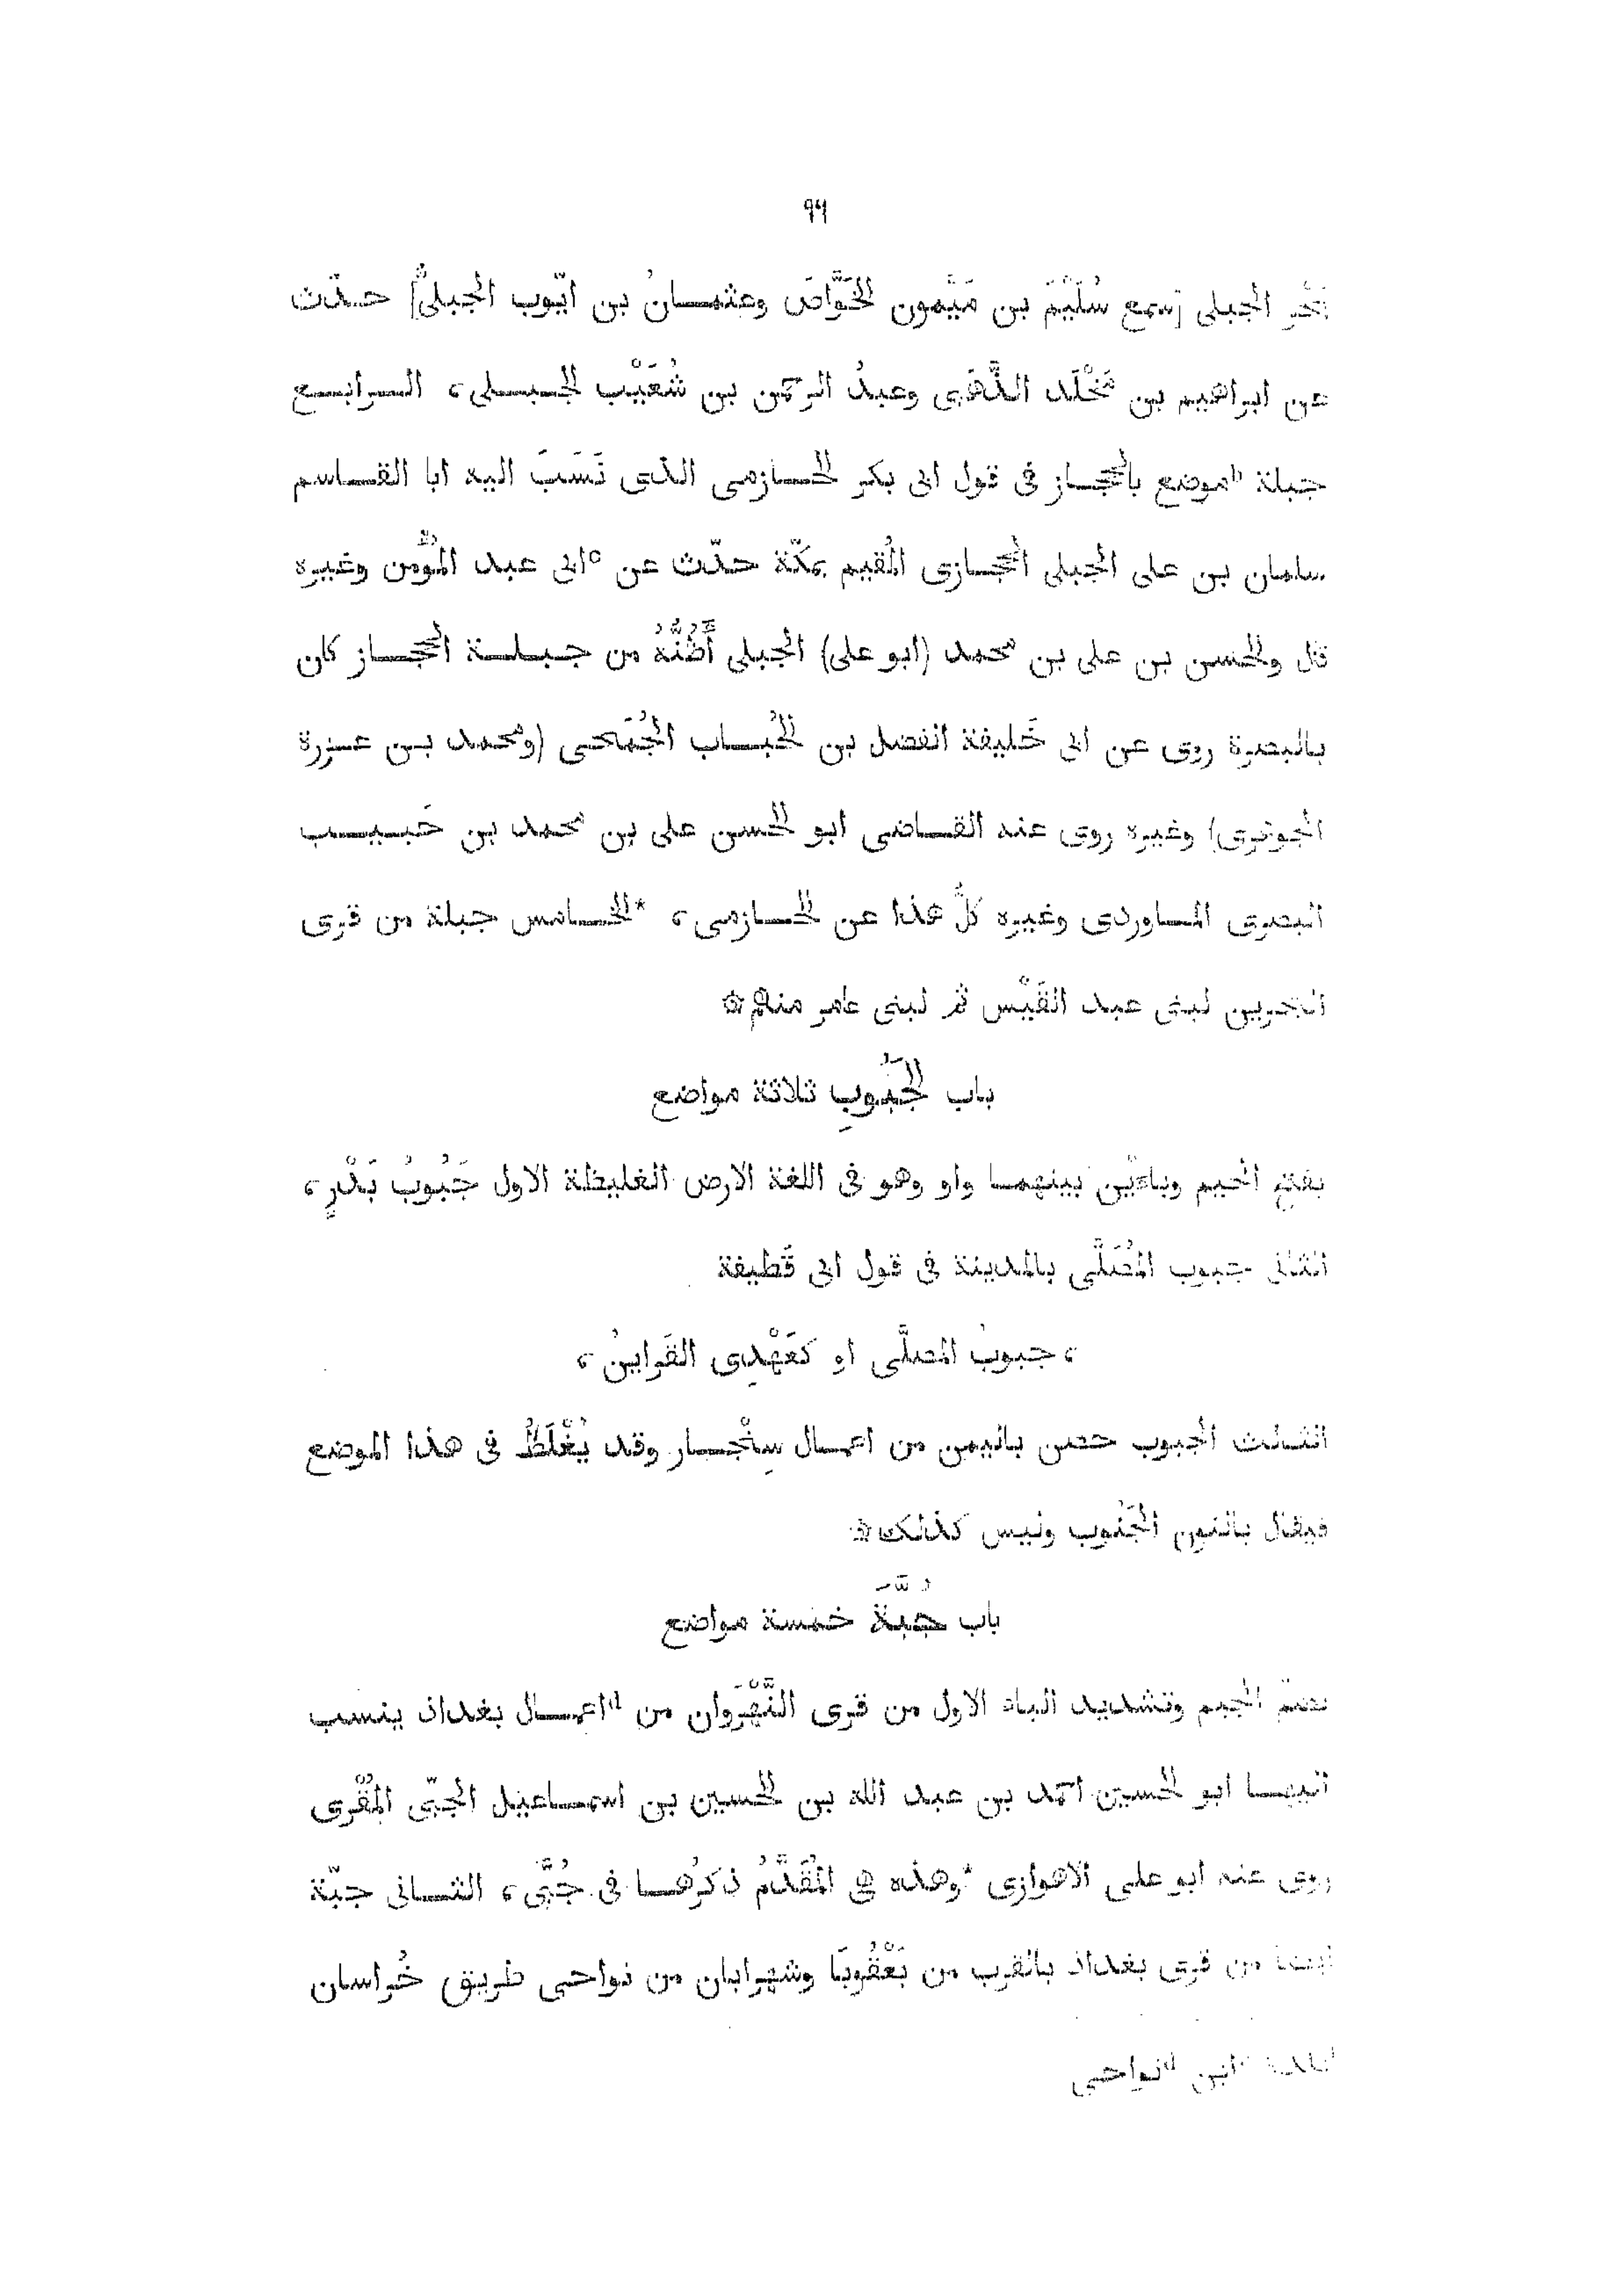 ٩٦
الجبلى [سمع سُلَيْمَ بن مَيْمون الخَوَّاصَ وعثمـانُ بن ايّوب الجبلىُّ] حـدّث
عن ابراهيم بن مَخْلَد الذَّهَبى وعبدُ الرحمن بن شُعَيْب الجـبـلى، الـرابـع
جبلة "موضع بالحجـاز فى قول ابى بكر الحـازمى الذى نَسَبَ اليه ابا القـاسم
سلمان بن على الجبلى الحجـازى المقيم بمكّة حدّث عن °ابى عبد المُؤْمن وغيره
قال والحسن بن على بن محمد (ابو على) الجبلى أَظُنُّهُ من جـبـلـة الحجـاز كان
بالبصرة روى عن ابى خَليفة الفضل بن الحُبـاب الجُمَحـى (ومحمد بـن عـزرة
الجوهرى) وغيره روى عنه القـاضى ابو الحسن على بن محمد بن حَبـيـب
البصرى المـاوردى وغيره كلُّ هذا عن الحـازمى، *الخـامس جبلة من قرى
البحرين لبنى عبد القَيْس ثم لبنى عامر منهم۞
باب الجَبُوبِ ثلاثة مواضع
بفتح الجيم وباءَيْن بينهمـا واو وهو فى اللغة الارض الغليظة الاول جَبُوبُ بَدْرٍ،
الثانى جبوب المُصَلَّى بالمدينة فى قول ابى قَطيفة
، جبوبُ المصلَّى او كعَهْدِى القَراينُ،
الثـالث الجبوب حصن باليمن من اعمـال سِنْجـار وقد يُغْلَطُ فى هذا الموضع
فيقال بالنون الجَنُوب وليس كذلك۞
باب جُبَّةَ خمسة مواضع
بضمّ الجيم وتشديد الباء الاول من قرى النَّهْرَوان من "اعمـال بغداد ينسب
اليهـا ابو الحسين احمد بن عبد الله بن الحسين بن اسمـاعيل الجبّى المُقْرى
روى عنه ابو على الاهوازى *وهذه هى المُقَدَّمُ ذكرُهـا فى جُبَّى، الثـانى جبّة
ايضا من قرى بغداد بالقرب من بَعْقُوبَا وشهرابان من نواحى طريق خُراسان
"نواحى